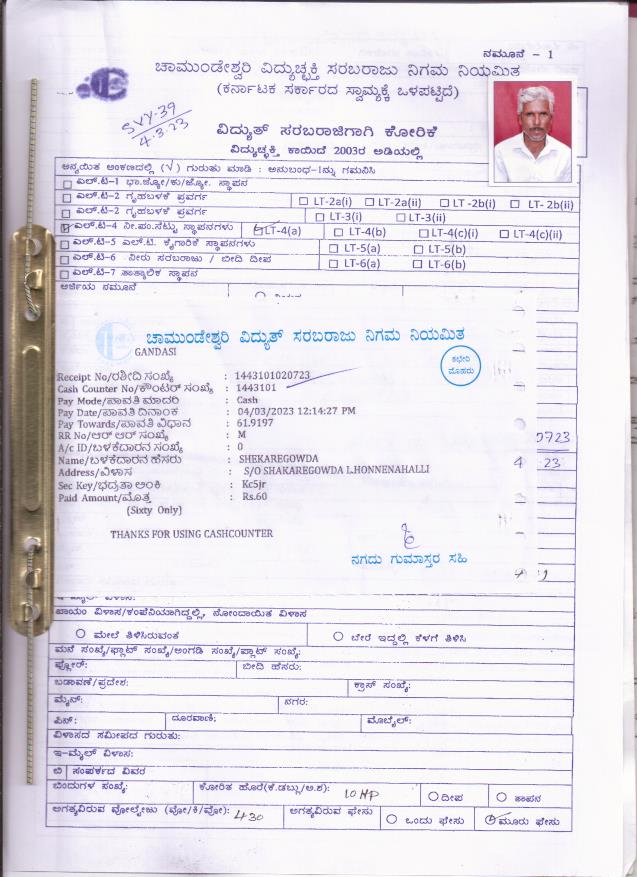 ನಮೂನೆ - 1
ಚಾಮುಂಡೇಶ್ವರಿ ವಿದ್ಯುಚ್ಛಕ್ತಿ ಸರಬರಾಜು ನಿಗಮ ನಿಯಮಿತ
(ಕರ್ನಾಟಕ ಸರ್ಕಾರದ ಸ್ವಾಮ್ಯಕ್ಕೆ ಒಳಪಟ್ಟಿದೆ)
SVY-39
4.3.23
ವಿದ್ಯುತ್ ಸರಬರಾಜಿಗಾಗಿ ಕೋರಿಕೆ
ವಿದ್ಯುಚ್ಛಕ್ತಿ ಕಾಯಿದೆ 2003ರ ಅಡಿಯಲ್ಲಿ
ಅನ್ವಯಿತ ಅಂಕಣದಲ್ಲಿ (√) ಗುರುತು ಮಾಡಿ : ಅನುಬಂಧ-1ನ್ನು ಗಮನಿಸಿ
ಎಲ್.ಟಿ-1 ಭಾ.ಜ್ಯೋ/ಕು/ಜ್ಯೋ. ಸ್ಥಾಪನ
ಎಲ್.ಟಿ-2 ಗೃಹಬಳಕೆ ಪ್ರವರ್ಗ LT-2a(i) LT-2a(ii) LT-2b(i) LT- 2b(ii)
ಎಲ್.ಟಿ-2 ಗೃಹಬಳಕೆ ಪ್ರವರ್ಗ LT-3(i) LT-3(ii)
ಎಲ್.ಟಿ-4 ನೀ.ಪಂ.ಸೆಟ್ಟು ಸ್ಥಾಪನಗಳು LT-4(a) LT-4(b) LT-4(c)(i) LT-4(c)(ii)
ಎಲ್.ಟಿ-5 ಎಲ್.ಟಿ. ಕೈಗಾರಿಕೆ ಸ್ಥಾಪನಗಳು LT-5(a) LT-5(b)
ಎಲ್.ಟಿ-6 ನೀರು ಸರಬರಾಜು / ಬೀದಿ ದೀಪ LT-6(a) LT-6(b)
ಎಲ್.ಟಿ-7 ತಾತ್ಕಾಲಿಕ ಸ್ಥಾಪನ
ಅರ್ಜಿಯ ನಮೂನೆ
ಚಾಮುಂಡೇಶ್ವರಿ ವಿದ್ಯುತ್ ಸರಬರಾಜು ನಿಗಮ ನಿಯಮಿತ
GANDASI
ಕಛೇರಿ
ಮೊಹರು
Receipt No/ರಶೀದಿ ಸಂಖ್ಯೆ : 1443101020723
Cash Counter No/ಕೌಂಟರ್ ಸಂಖ್ಯೆ : 1443101
Pay Mode/ಪಾವತಿ ಮಾದರಿ : Cash
Pay Date/ಪಾವತಿ ದಿನಾಂಕ : 04/03/2023 12:14:27 PM
Pay Towards/ಪಾವತಿ ವಿಧಾನ : 61.9197
RR No/ಆರ್ ಆರ್ ಸಂಖ್ಯೆ : M
0723
A/c ID/ಬಳಕೆದಾರನ ಸಂಖ್ಯೆ : 0
Name/ಬಳಕೆದಾರನ ಹೆಸರು : SHEKAREGOWDA
4 23
Address/ವಿಳಾಸ : S/O SHAKAREGOWDA L.HONNENAHALLI
Sec Key/ಭದ್ರತಾ ಅಂಕಿ : Kc5jr
Paid Amount/ಮೊತ್ತ : Rs.60
(Sixty Only)
THANKS FOR USING CASHCOUNTER
ನಗದು ಗುಮಾಸ್ತರ ಸಹಿ
ಖಾಯಂ ವಿಳಾಸ/ಕಂಪೆನಿಯಾಗಿದ್ದಲ್ಲಿ, ನೋಂದಾಯಿತ ವಿಳಾಸ
ಮೇಲೆ ತಿಳಿಸಿರುವಂತೆ ಬೇರೆ ಇದ್ದಲ್ಲಿ ಕೆಳಗೆ ತಿಳಿಸಿ
ಮನೆ ಸಂಖ್ಯೆ/ಫ್ಲಾಟ್ ಸಂಖ್ಯೆ/ಅಂಗಡಿ ಸಂಖ್ಯೆ/ಪ್ಲಾಟ್ ಸಂಖ್ಯೆ:
ಫ್ಲೋರ್: ಬೀದಿ ಹೆಸರು:
ಬಡಾವಣೆ/ಪ್ರದೇಶ: ಕ್ರಾಸ್ ಸಂಖ್ಯೆ:
ಮೈನ್: ನಗರ:
ಪಿನ್: ದೂರವಾಣಿ: ಮೊಬೈಲ್:
ವಿಳಾಸದ ಸಮೀಪದ ಗುರುತು:
ಇ-ಮೈಲ್ ವಿಳಾಸ:
ಬಿ ಸಂಪರ್ಕದ ವಿವರ
ಬಿಂದುಗಳ ಸಂಖ್ಯೆ: ಕೋರಿತ ಹೊರೆ(ಕೆ.ಡಬ್ಲು/ಅ.ಶ): 10 HP ದೀಪ ತಾಪನ
ಅಗತ್ಯವಿರುವ ವೋಲ್ಟೇಜು (ವೋ/ಕಿ/ವೋ): 430 ಅಗತ್ಯವಿರುವ ಫೇಸು ಒಂದು ಫೇಸು ಮೂರು ಫೇಸು